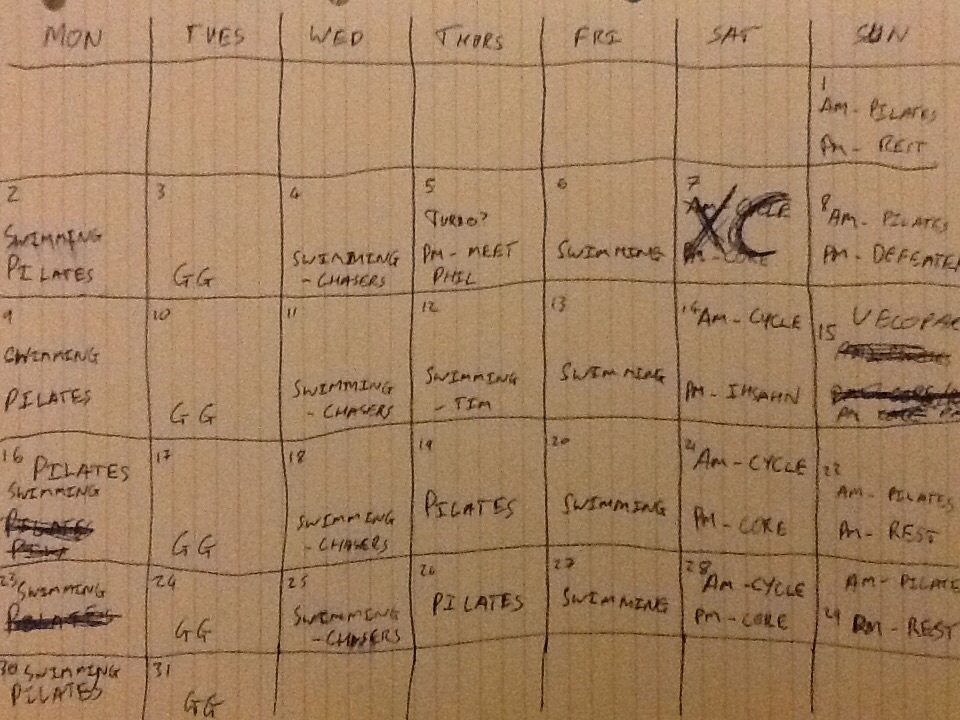 MON TUES WED THURS FRI SAT SUN
1
AM - PILATES
PM - REST
2
SWIMMING
PILATES
3
GG
4
SWIMMING
- CHASERS
5
TURBO?
PM - MEET
PHIL
6
SWIMMING
7
AM - CYCLE
XC
PM - CORE
8
AM - PILATES
PM - DEFEATER
9
SWIMMING
PILATES
10
GG
11
SWIMMING
- CHASERS
12
SWIMMING
- TIM
13
SWIMMING
14
AM - CYCLE
PM - IHSAHN
15
VELOPAR
PM
16
PILATES
SWIMMING
PILATES
17
GG
18
SWIMMING
- CHASERS
19
PILATES
20
SWIMMING
21
AM - CYCLE
PM - CORE
22
AM - PILATES
PM - REST
23
SWIMMING
PILATES
24
GG
25
SWIMMING
- CHASERS
26
PILATES
27
SWIMMING
28
AM - CYCLE
PM - CORE
AM - PILATE
29 PM - REST
30 SWIMMING
PILATES
31
GG